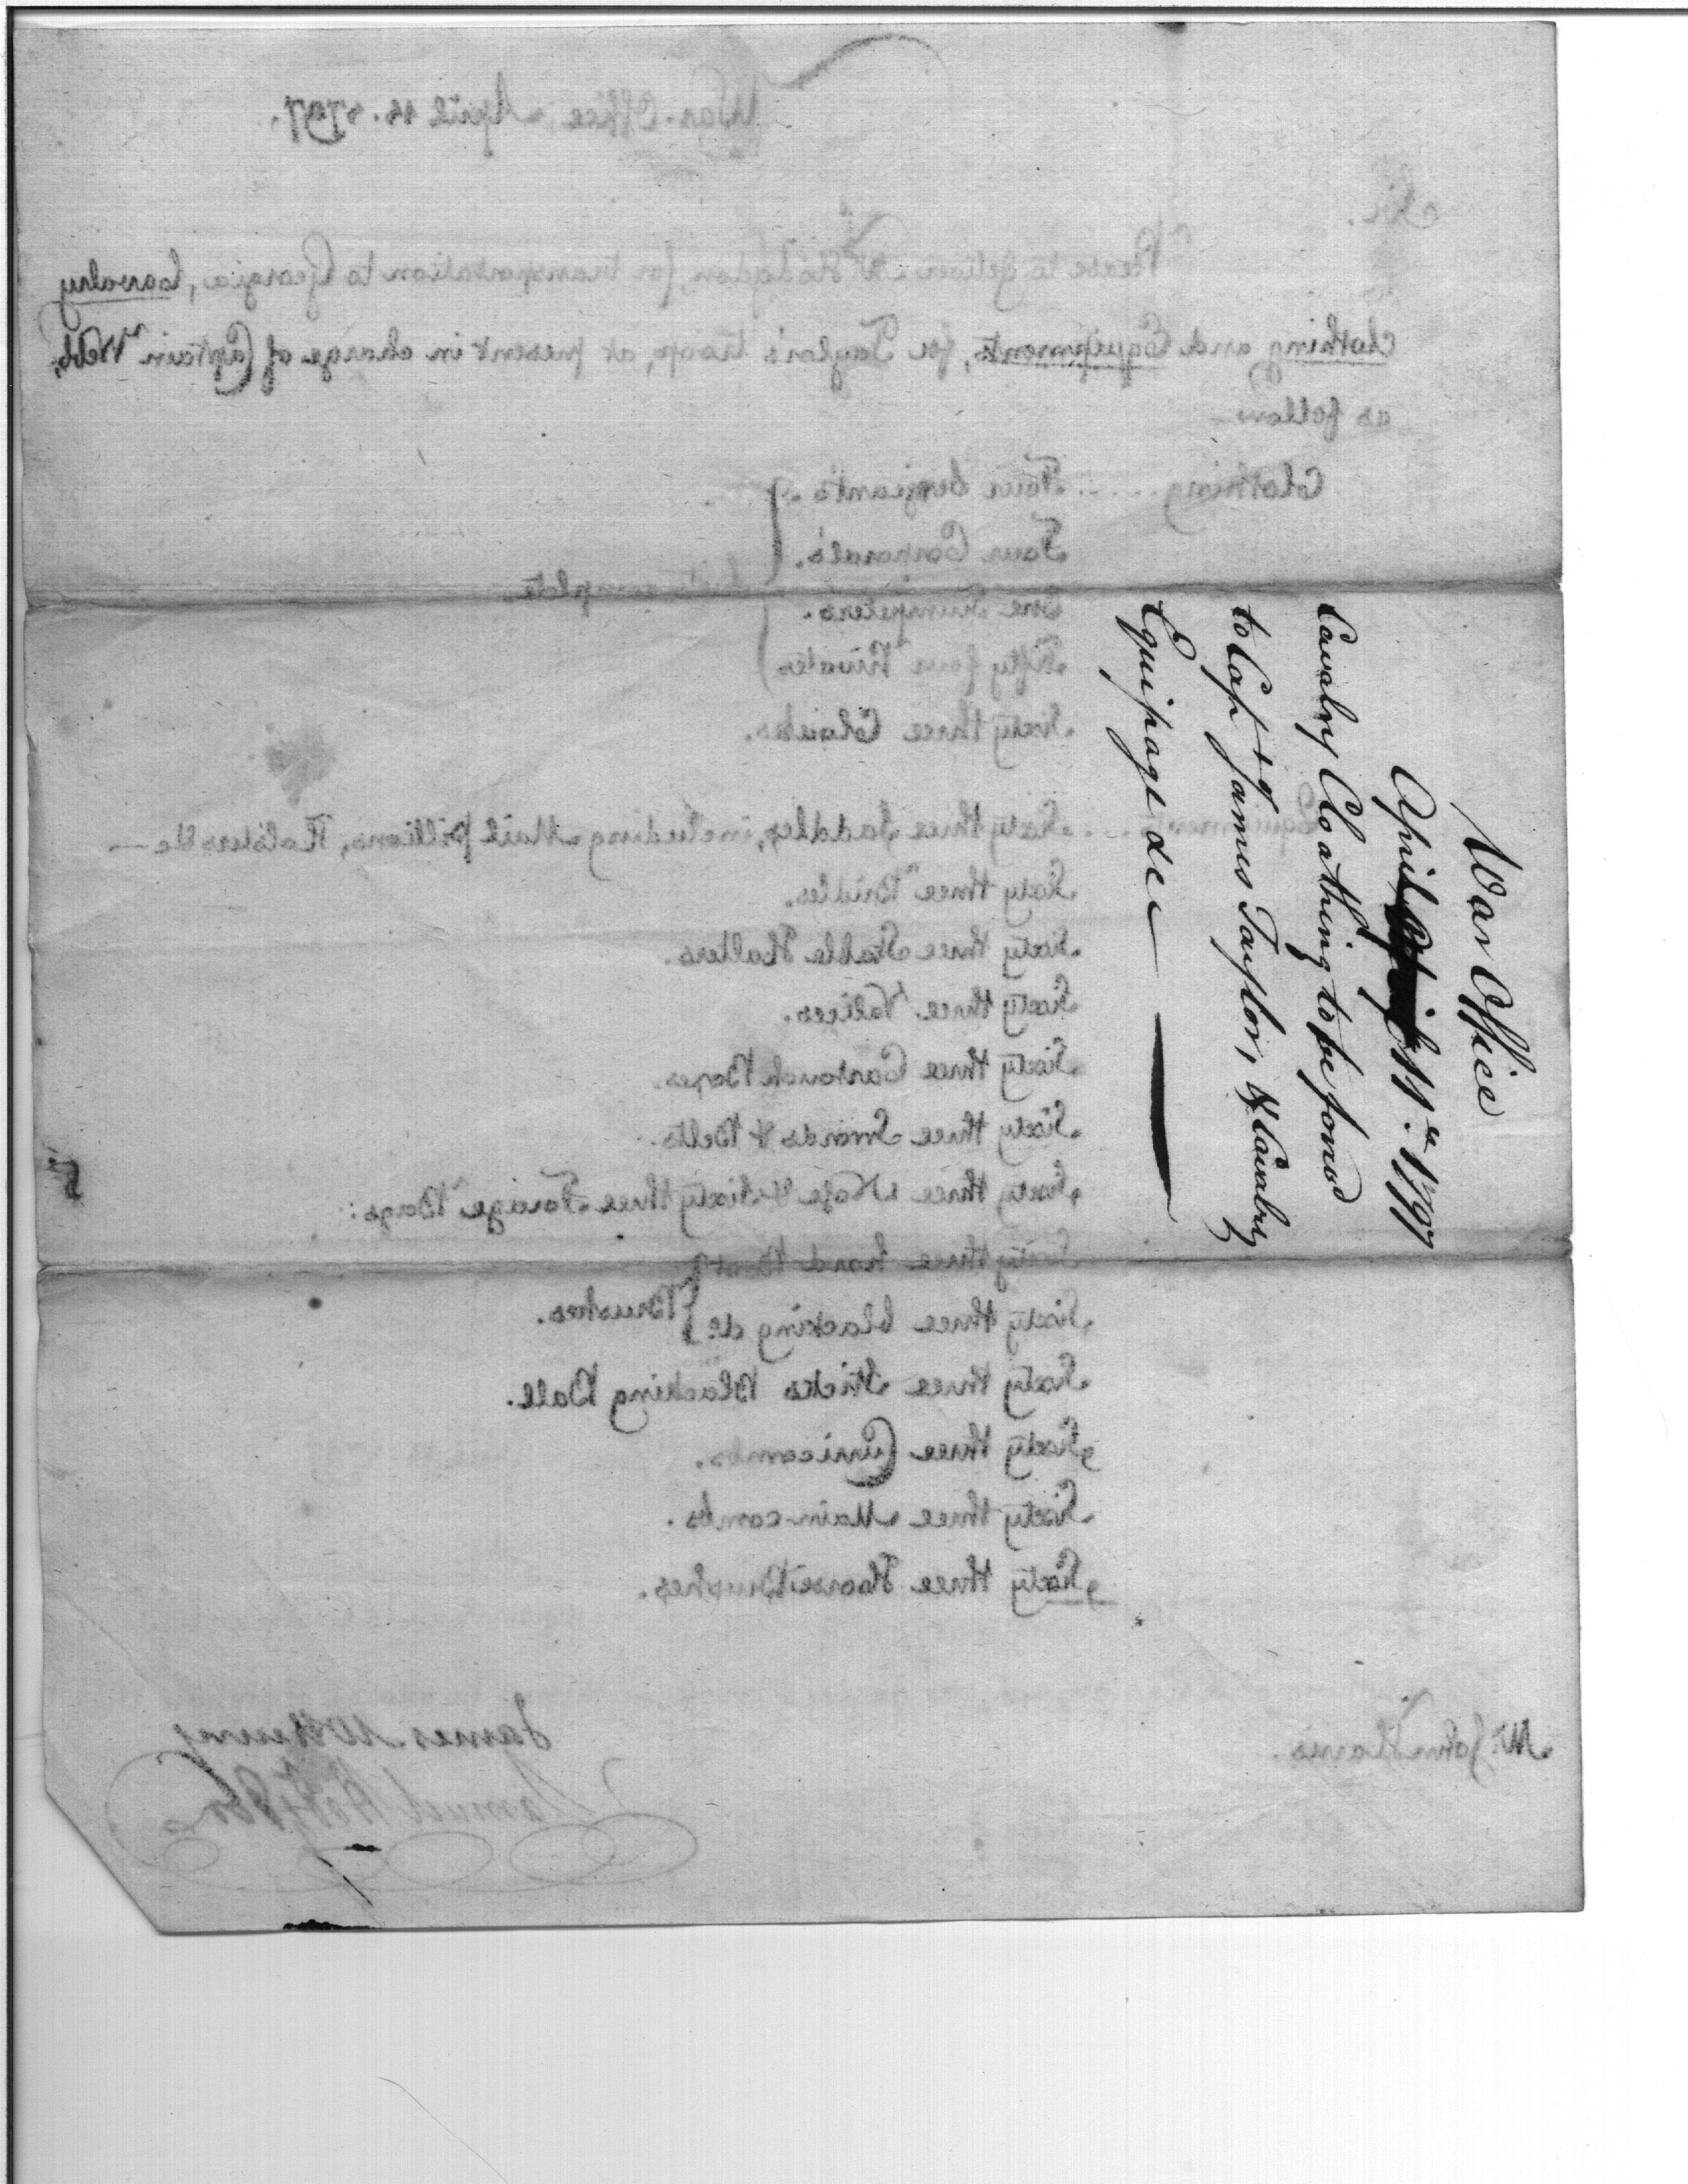 War Office
April 1797
Cavalry Cloathing to be forwd
to Capt James Taylor, & Cavalry
Equipage &c
War Office April 14. 1797.
Sir.
Please to deliver Mr Hodgdon, for transportation to Georgia, Cavalry
Clothing and Equipments, for Taylor's troop, at present in charge of Captain Webb,
as follow
Clothing ..... Four Serjeants.
Four Corporal's.
One Trumpeters. Suits complete
Fifty four Privates
Sixty three Cloaks.
Equipment ... Sixty three Saddles, including Mail pillions, Holsters &c —
Sixty three Bridles.
Sixty three Stable Halters.
Sixty three Valices.
Sixty three Cartouch Boxes.
Sixty three Swords & Belts.
Sixty three Nose & Sixty three Forage Bags:
Sixty three hard Boot
Sixty three blacking do. Brushes.
Sixty three Sticks Blacking Ball.
Sixty three Curricombs.
Sixty three Main-combs.
Sixty three Horse Brushes.
James McHenry
Mr. John Harris.
Samuel Hodgdon